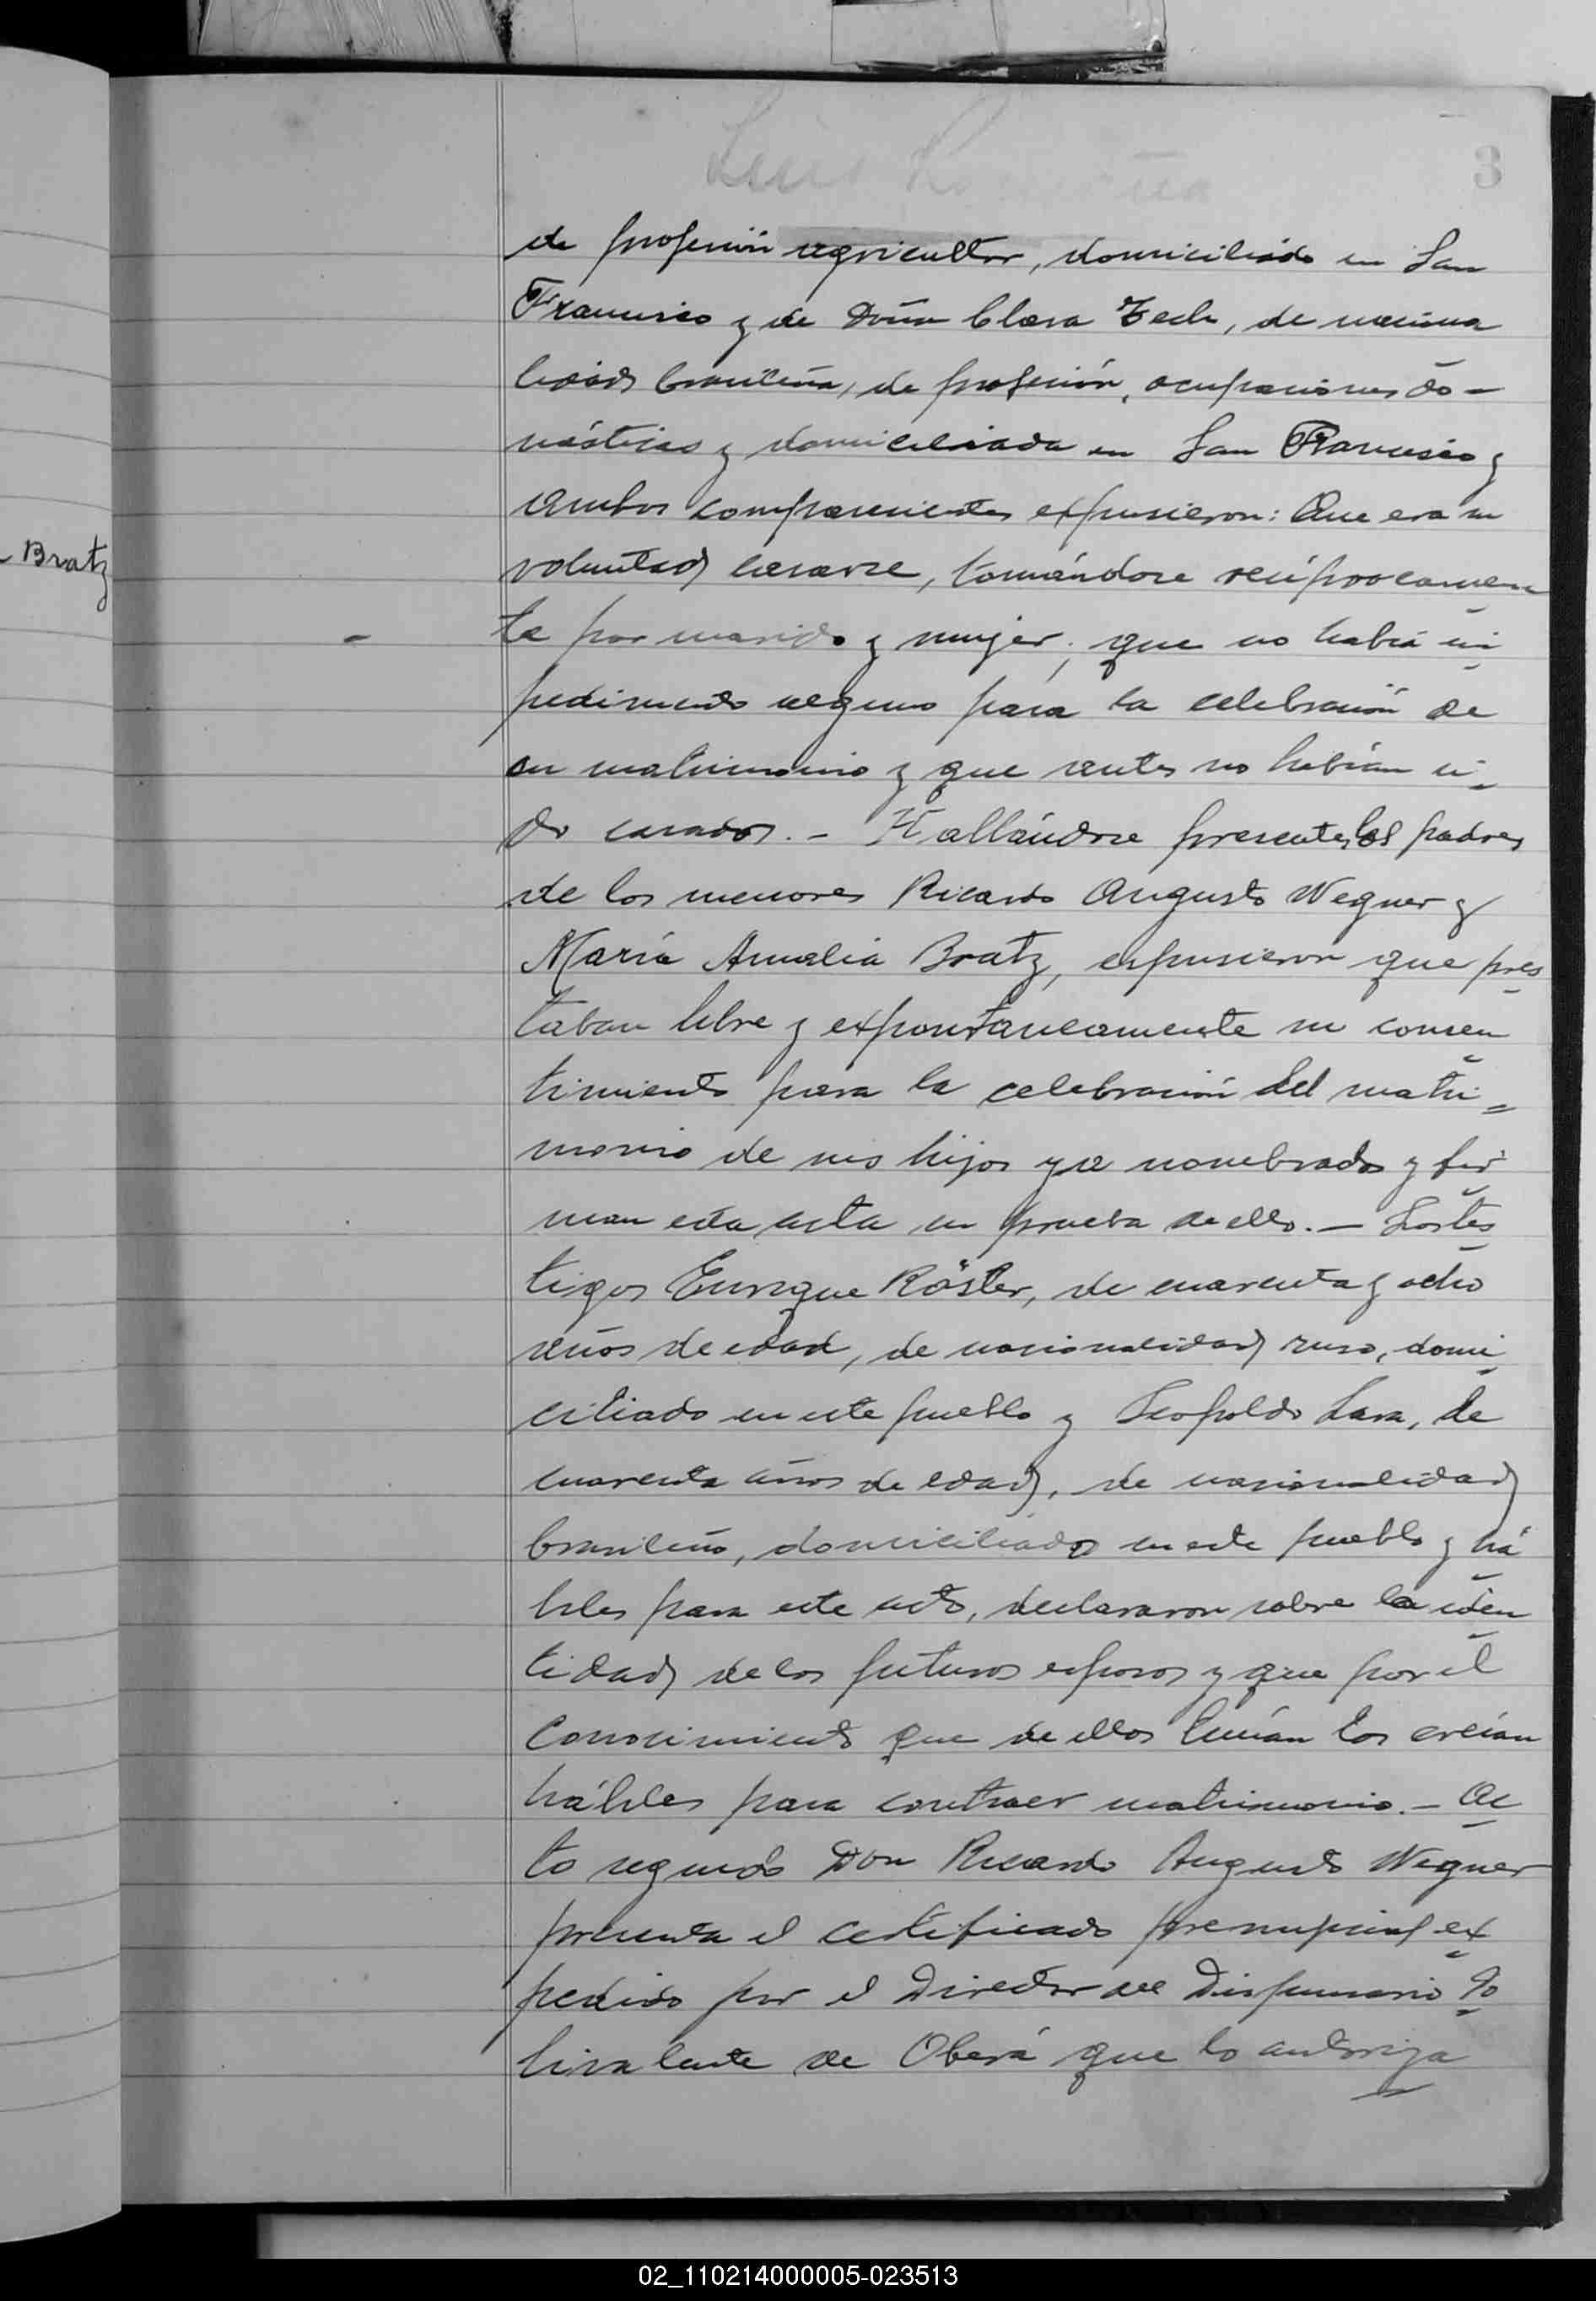 3
de profesión agricultor, domiciliado en San
Francisco y de Doña Clara Zech, de naciona
lidad brasileña, de profesión, ocupaciones do-
mésticas y domiciliada en San Francisco y
ambos comparecientes expusieron: Que era su
- Bratz
voluntad casarse, tomándose recíprocamen
te por marido y mujer; que no había im
pedimento alguno para la celebración de
su matrimonio y que antes no habían si-
do casados.- Hallándose presentes los padres
de los menores Ricardo Augusto Wegner y
María Amalia Bratz, expusieron que pres
taban libre y expontaneamente su consen
timiento para la celebración del matri=
monio de sus hijos ya nombrados y fir
man esta acta en prueba de ello.- Los tes
tigos Enrique Röster, de cuarenta y ocho
años de edad, de nacionalidad ruso, domi
ciliado en este pueblo y Leopoldo Lara, de
cuarenta años de edad, de nacionalidad
brasileño, domiciliado en este pueblo y há
biles para este acto, declararon sobre la iden
tidad de los futuros esposos y que por el
conocimiento que de ellos tenían los creían
hábiles para contraer matrimonio.- Ac
to seguido Don Ricardo Augusto Wegner
presenta el certificado prenupcial ex
pedido por el Director del Dispensario Po
livalente de Oberá que lo autoriza
02_110214000005-023513